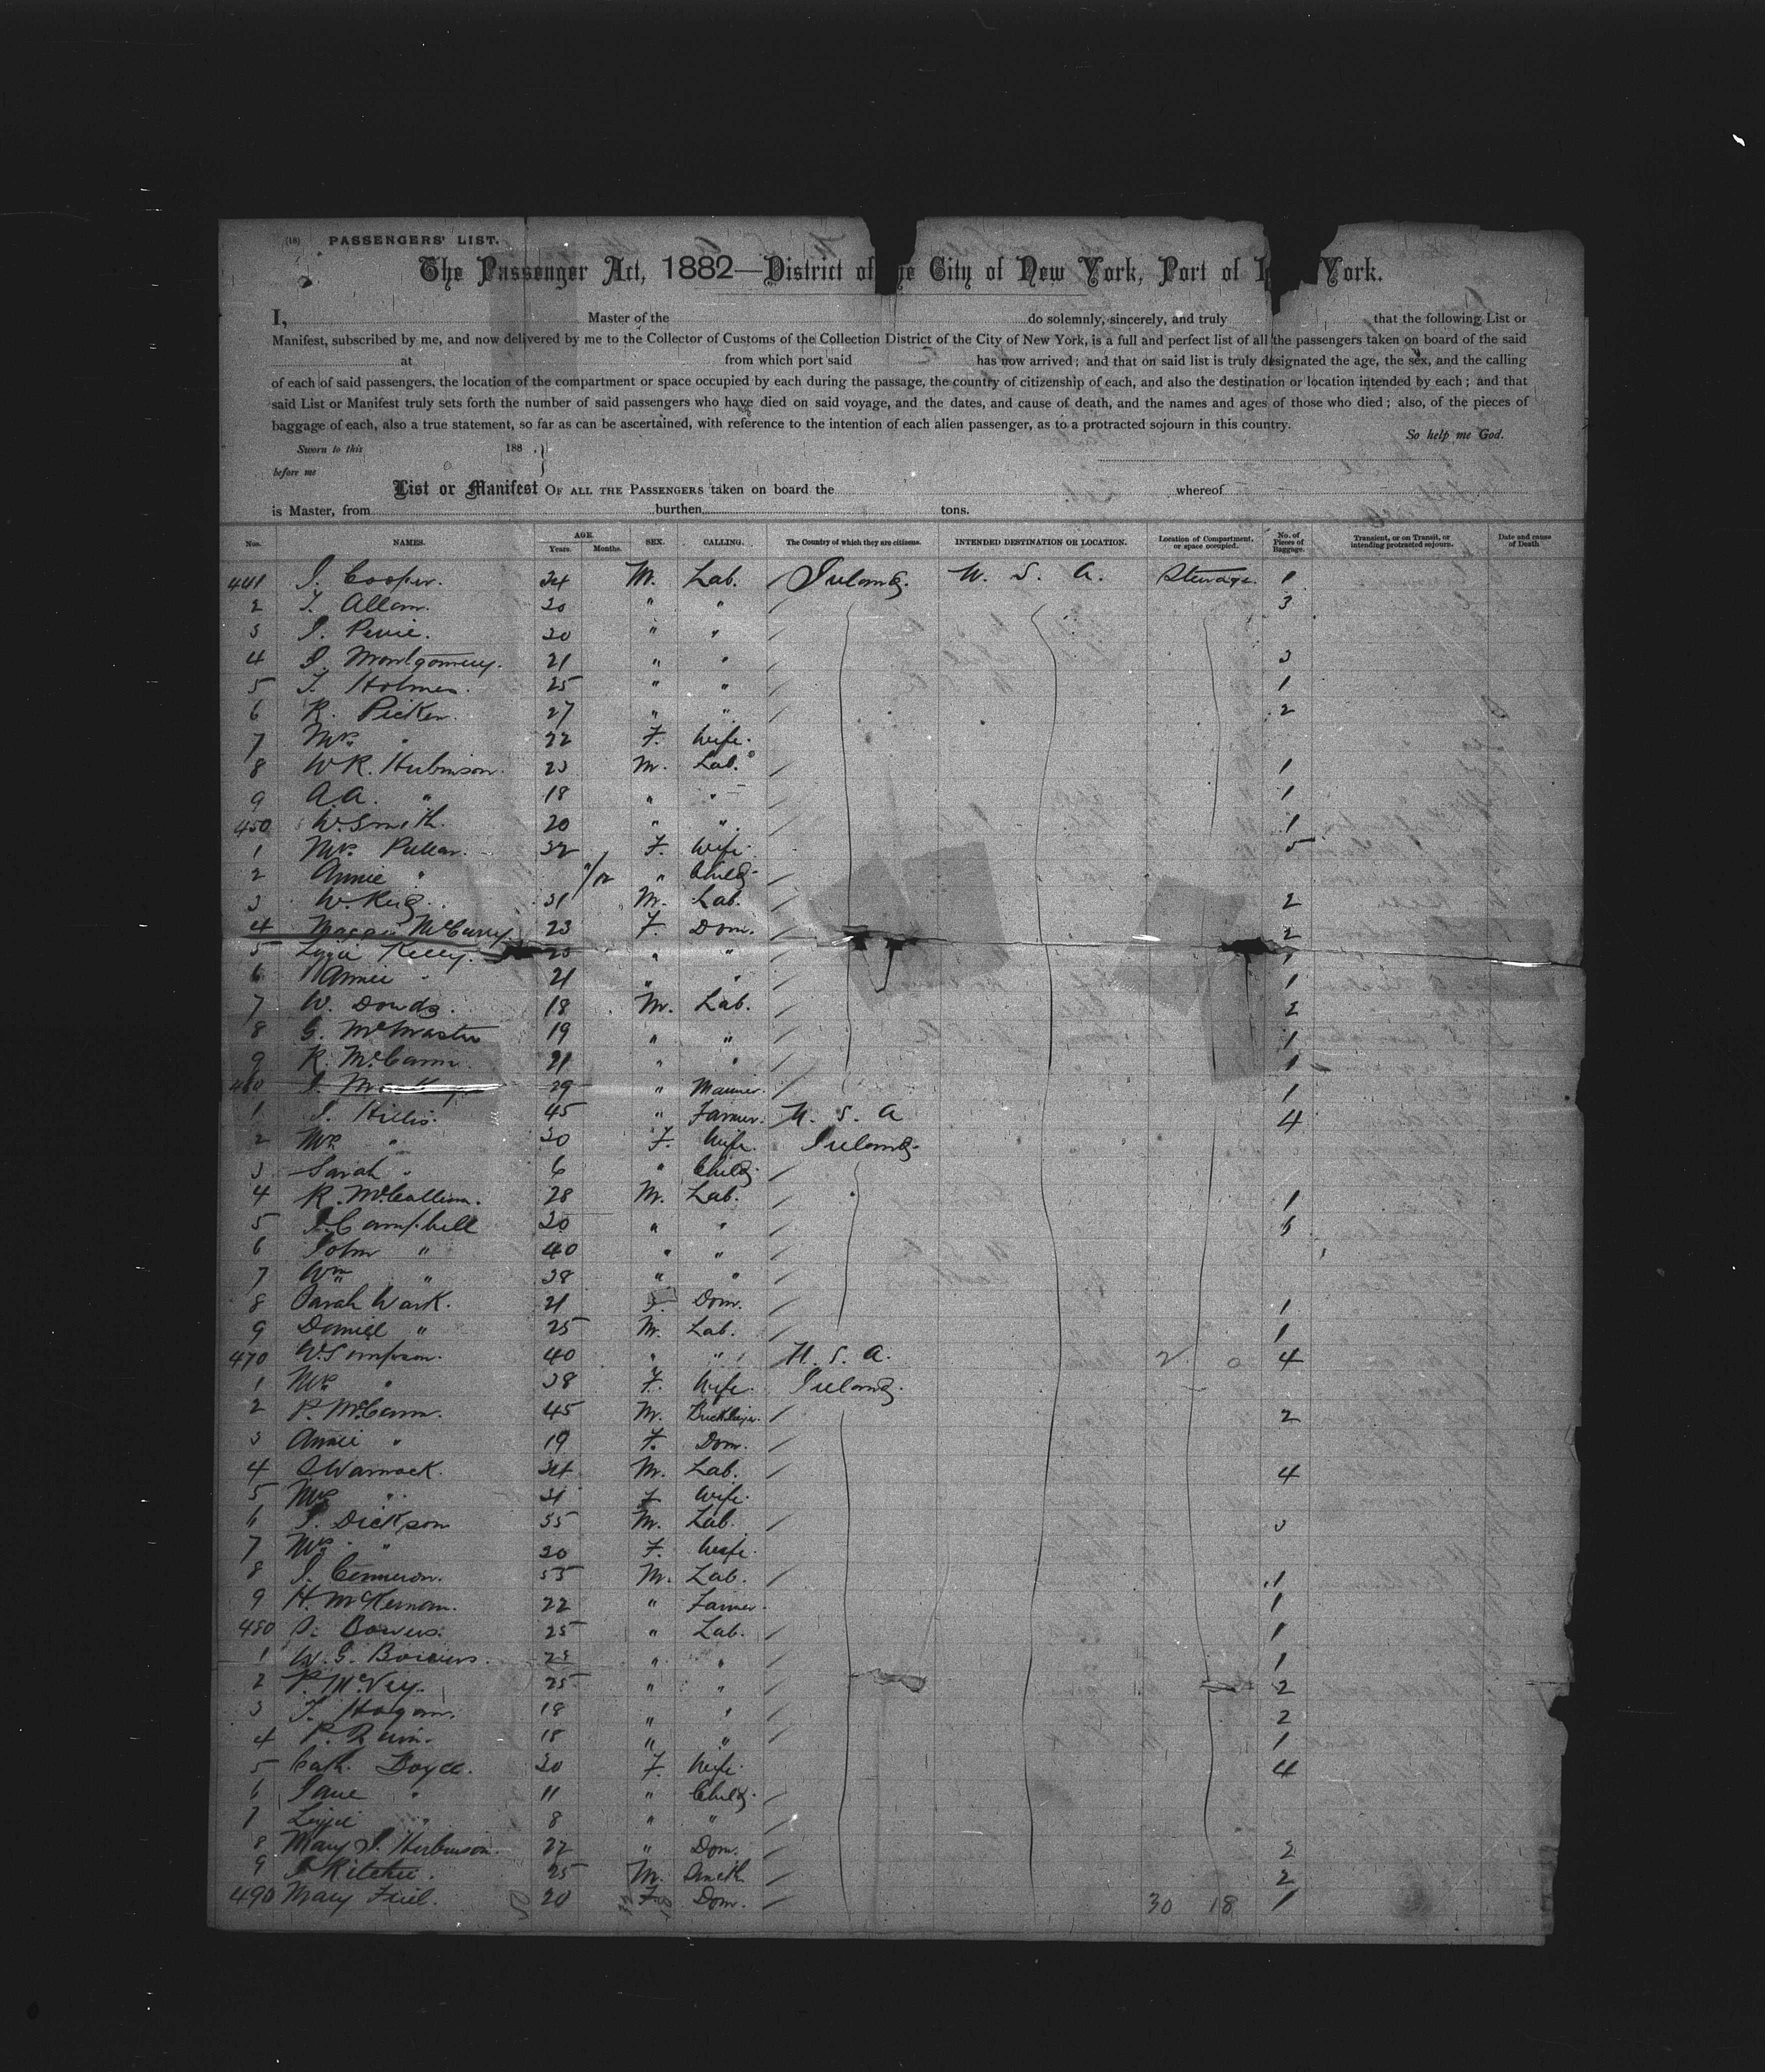 (18) PASSENGERS' LIST.
The Passenger Act, 1882—District of he City of New York, Port of York.
I, Master of the do solemnly, sincerely, and truly that the following List or
Manifest, subscribed by me, and now delivered by me to the Collector of Customs of the Collection District of the City of New York, is a full and perfect list of all the passengers taken on board of the said
at from which port said has now arrived; and that on said list is truly designated the age, the sex, and the calling
of each of said passengers, the location of the compartment or space occupied by each during the passage, the country of citizenship of each, and also the destination or location intended by each; and that
said List or Manifest truly sets forth the number of said passengers who have died on said voyage, and the dates, and cause of death, and the names and ages of those who died; also, of the pieces of
baggage of each, also a true statement, so far as can be ascertained, with reference to the intention of each alien passenger, as to a protracted sojourn in this country. So help me God.
Sworn to this 188 .
before me
List or Manifest OF ALL THE PASSENGERS taken on board the whereof
is Master, from burthen tons.
Nos. NAMES. AGE Years. Months. SEX. CALLING. The Country of which they are citizens. INTENDED DESTINATION OR LOCATION. Location of Compartment, or space occupied. No. of Pieces of Baggage. Transient, or on Transit, or intending protracted sojourn. Date and cause of Death
441 J. Cooper. 34 M. Lab. Ireland. U. S. A. Steerage. 1
2 T. Allam. 20 " " 3
3 J. 20 " "
4 J. Montgomery. 21 " " 3
5 T. Holmes. 25 " " 1
6 R. Picken. 27 " " 2
7 Mrs " 22 F. Wife.
8 W R. Hubinson. 23 M. Lab. 1
9 A.A. " 18 " " 1
450 W. Smith. 20 " " 1
1 Mrs Pullar. 32 F. Wife. 5
2 Annie " /12 " Child.
3 W. Reid. 31 M. Lab. 2
4 Maggie McCurry. 23 F. Dom. 2
5 Lizzie Kelly. " "
6 Annie " 21 " " 1
7 W. Dowds. 18 M. Lab. 2
8 G. McMaster 19 " " 1
9 R. McCann. 21 " " 1
460 29 " Mariner. 1
1 J. Hillis. 45 " Farmer. U. S. A 4
2 Mrs " 30 F. Wife. Ireland.
3 Sarah " 6 " Child.
4 R. McCallum. 28 M. Lab. 1
5 J. Campbell 20 " "
6 John " 40 " "
7 Wm " 38 " "
8 Sarah Wark. 21 F. Dom. 1
9 Daniel " 25 M. Lab. 1
470 W. Simpson. 40 " " U. S. A. 4
1 Mrs " 38 F. Wife. Ireland.
2 P. McCann. 45 M. Bricklayer. 2
3 Annie " 19 F. Dom.
4 Warnock. 34 M. Lab. 4
5 Mrs " 31 F Wife.
6 J. Dickson 35 M. Lab. 3
7 Mrs " 30 F. Wife.
8 J. Cameron. 55 M. Lab. 1
9 H. McKernan. 22 " Farmer. 1
480 Bowers. 25 " Lab. 1
1 W. G. " " 1
2 P. McVey. 25 " " 2
3 T. Hogan. 18 " " 2
4 P. 18 " " 1
5 Cath. Boyce. 30 F. Wife. 4
6 Jane " 11 " Child.
7 Lizzie " 8 " "
8 Mary J. Hubinson. 22 " Dom. 2
9 J Ritchie. 25 M. Smith 2
490 Mary Friel. 20 F. Dom. 30 18 1